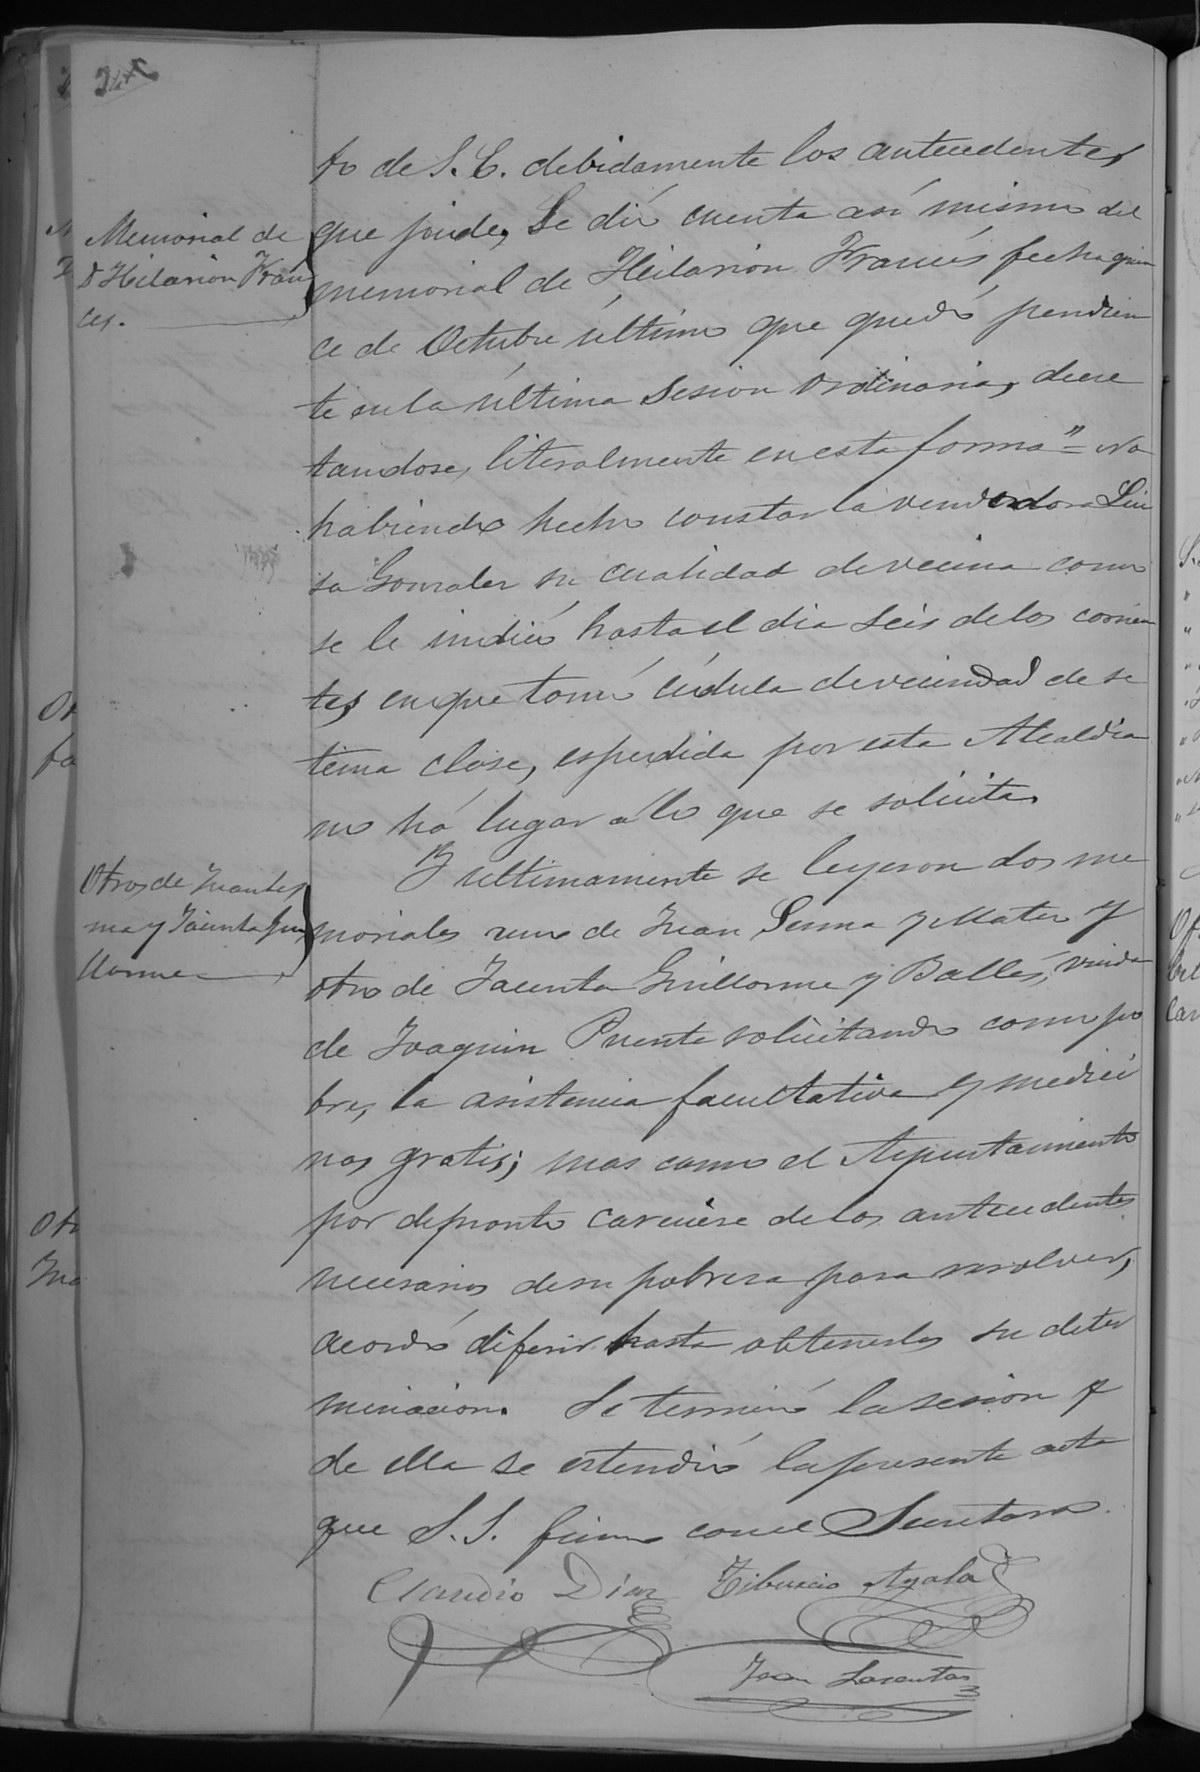 to de S. E. debidamente los antecedentes
que pide, Se dió cuenta así mismo del
Memorial de
D Hilarion Fran
ces.
memorial de Hilarion Francés fecha quin
ce de Octubre último que quedó pendien
te en la última Sesion Ordinaria, decre
tandose, literalmente en esta forma "= No
habiendo hecho constar la vendedora Lui
sa Gonzalez su cualidad de vecina como
se le indicó hasta el dia Seis de los corrien
tes en que tomó cédula de vecindad de se
tima clase, espedida por esta Alcaldia
no há lugar a lo que se solicita.
Y ultimamente se leyeron dos me
Otros de Juan Ser
ma y Jacinta Gui
llorme
moriales uno de Juan Serma y Mater y
otro de Jacinta Guillorme y Ballés, viuda
de Joaquin Puente solicitando como po
bres, la asistencia facultativa y medici
nas gratis; mas como el Ayuntamiento
por depronto careciere de los antecedentes
necesarios de su pobreza para resolver,
acordó diferir hasta obtenerlos su deter
minacion. Se terminó la sesion y
de ella se estendió la presente acta
que S. S. firma con el Secretario.
Claudio Diaz Tiburcio Ayala
Juan